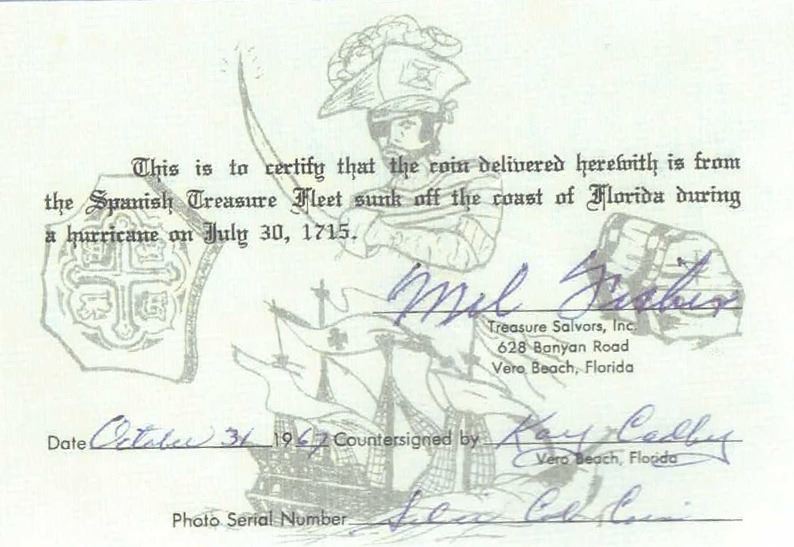 This is to certify that the coin delivered herewith is from
the Spanish Treasure Fleet sunk off the coast of Florida during
a hurricane on July 30, 1715.
Mel Fisher
Treasure Salvors, Inc.
628 Banyan Road
Vero Beach, Florida
Date October 31 1967 Countersigned by Kay
Vero Beach, Florida
Photo Serial Number Silver Cob Coin